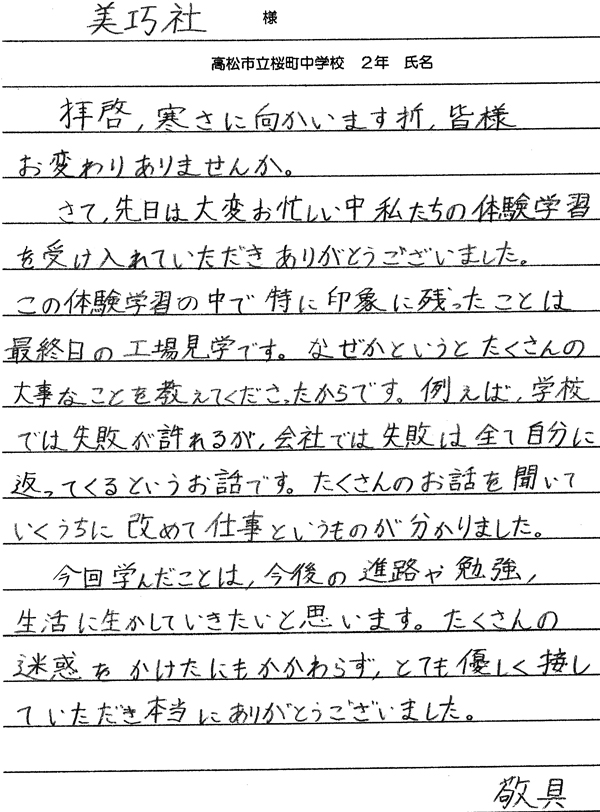 美巧社 様
高松市立桜町中学校 2年 氏名
拝啓,寒さに向かいます折,皆様
お変わりありませんか。
さて,先日は大変お忙しい中私たちの体験学習
を受け入れていただきありがとうございました。
この体験学習の中で特に印象に残ったことは
最終日の工場見学です。なぜかというとたくさんの
大事なことを教えてくださったからです。例えば,学校
では失敗が許れるが,会社では失敗は全て自分に
返ってくるというお話です。たくさんのお話を聞いて
いくうちに改めて仕事というものが分かりました。
今回学んだことは,今後の進路や勉強,
生活に生かしていきたいと思います。たくさんの
迷惑をかけたにもかかわらず,とても優しく接し
ていただき本当にありがとうございました。
敬具